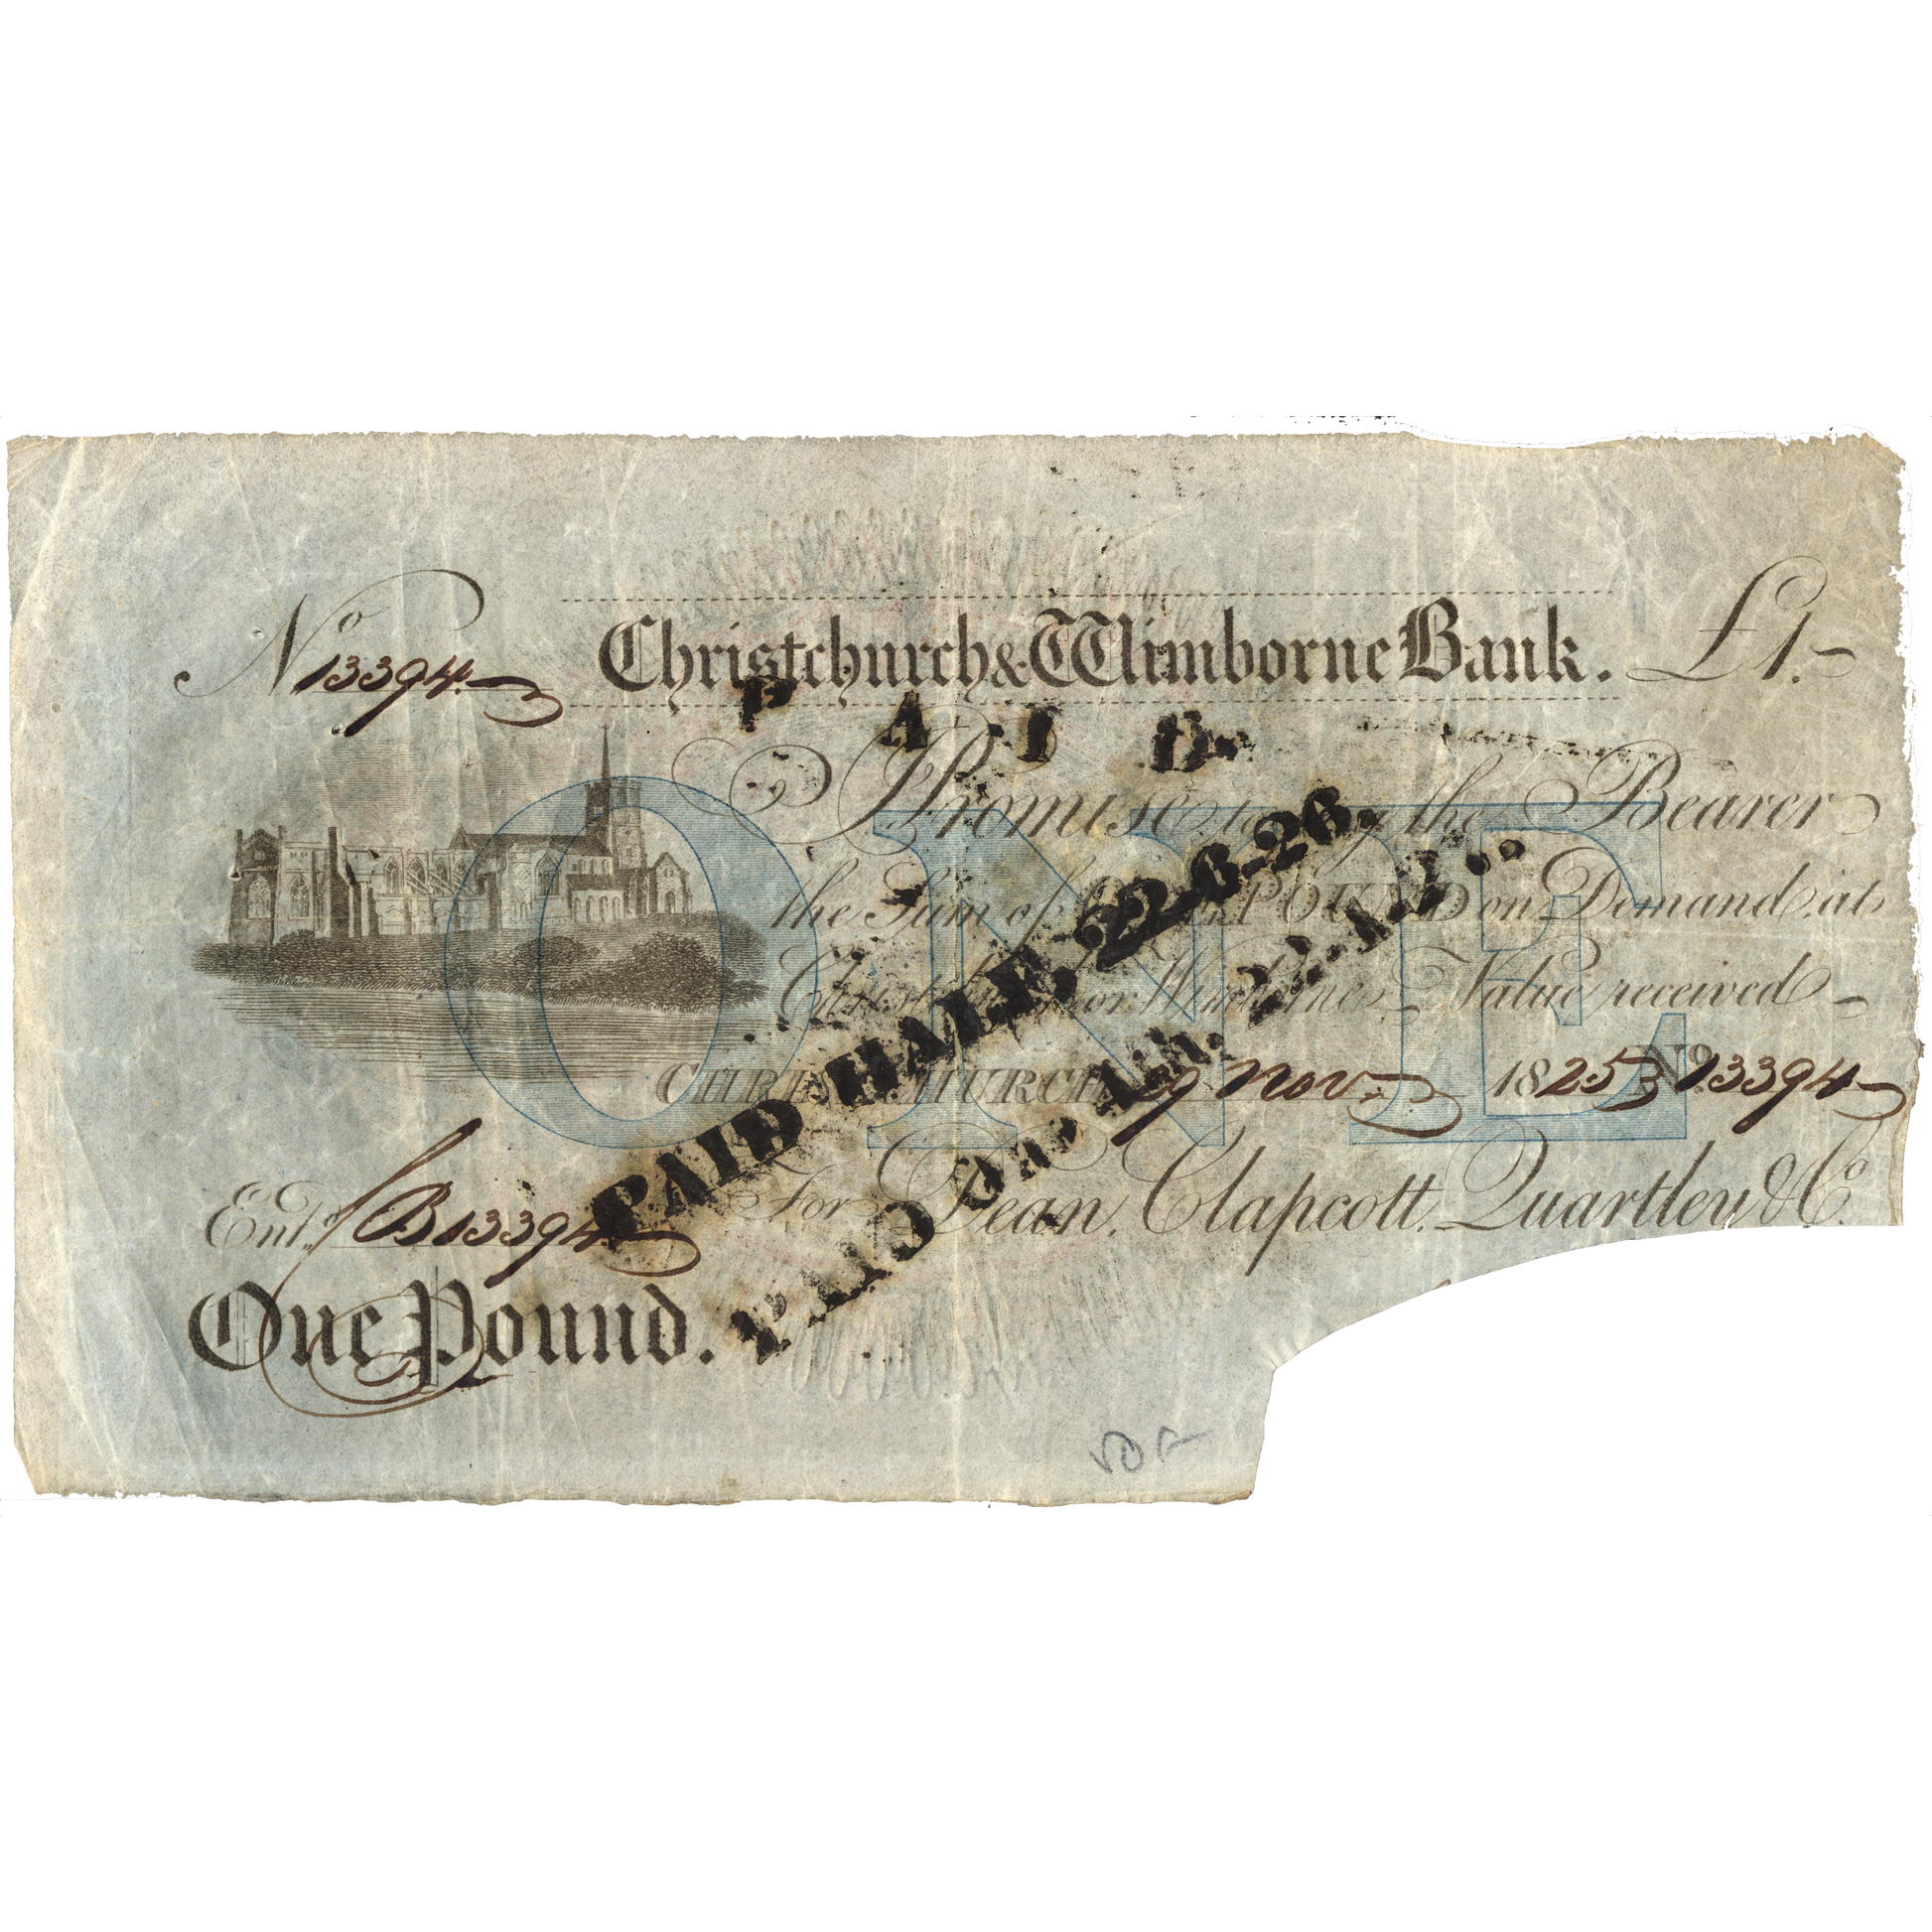 No 13394 Christchurch & Wimborne Bank. £1.-
PAID
I Promise to pay the Bearer
the Sum of ONE POUND on Demand at
Christchurch or Wimborne, Value received
CHRISTCHURCH 29 Nov 1825 No 13394
PAID HALF, 22-6-26.
PAID
Entd B13394 For Dean, Clapcott, Quartley & Co.
One Pound.
ONE